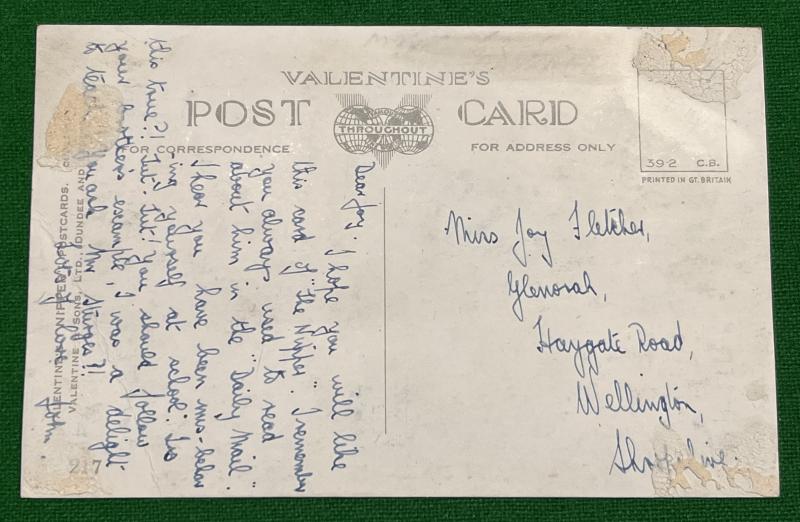 VALENTINE'S
POST CARD
THROUGHOUT
FOR CORRESPONDENCE
FOR ADDRESS ONLY
39-2 C.B.
PRINTED IN GT. BRITAIN
Dear Joy. I hope you will like
this card of "The Nipper". I remember
you always used to read
about him in the "Daily Mail".
I hear you have been mis-behav
ing yourself at school. Is
this true?! Tut! Tut! You should follow
your brother's example, I was a delight
to teach. You ask Mr
John.
Miss Joy Fletcher,
Glenorah,
Haygate Road,
Wellington,
Shropshire.
"NIPPER" POSTCARDS.
VALENTINE & SONS, LTD., DUNDEE AND
217